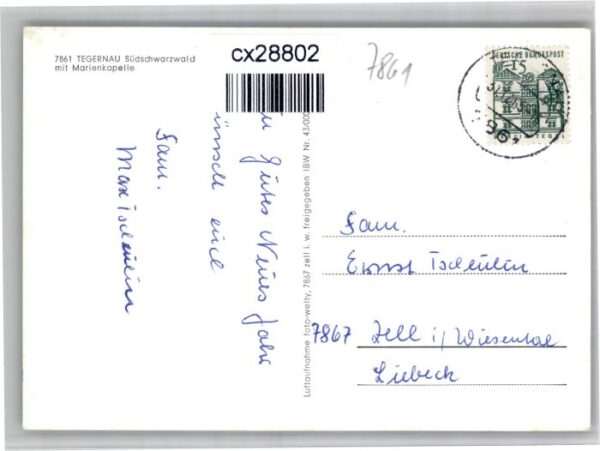 7861 TEGERNAU Südschwarzwald
mit Marienkapelle
cx28802
7861
DEUTSCHE BUNDESPOST
15
Gutes Neues Jahr
wünscht euch
Fam.
Max Tscheulin
Luftaufnahme foto-welty, 7867 zell i. w. freigegeben IBW Nr. 43/000
Fam.
Ernst Tscheulin
7867 Zell i/Wiesental
Liebeck